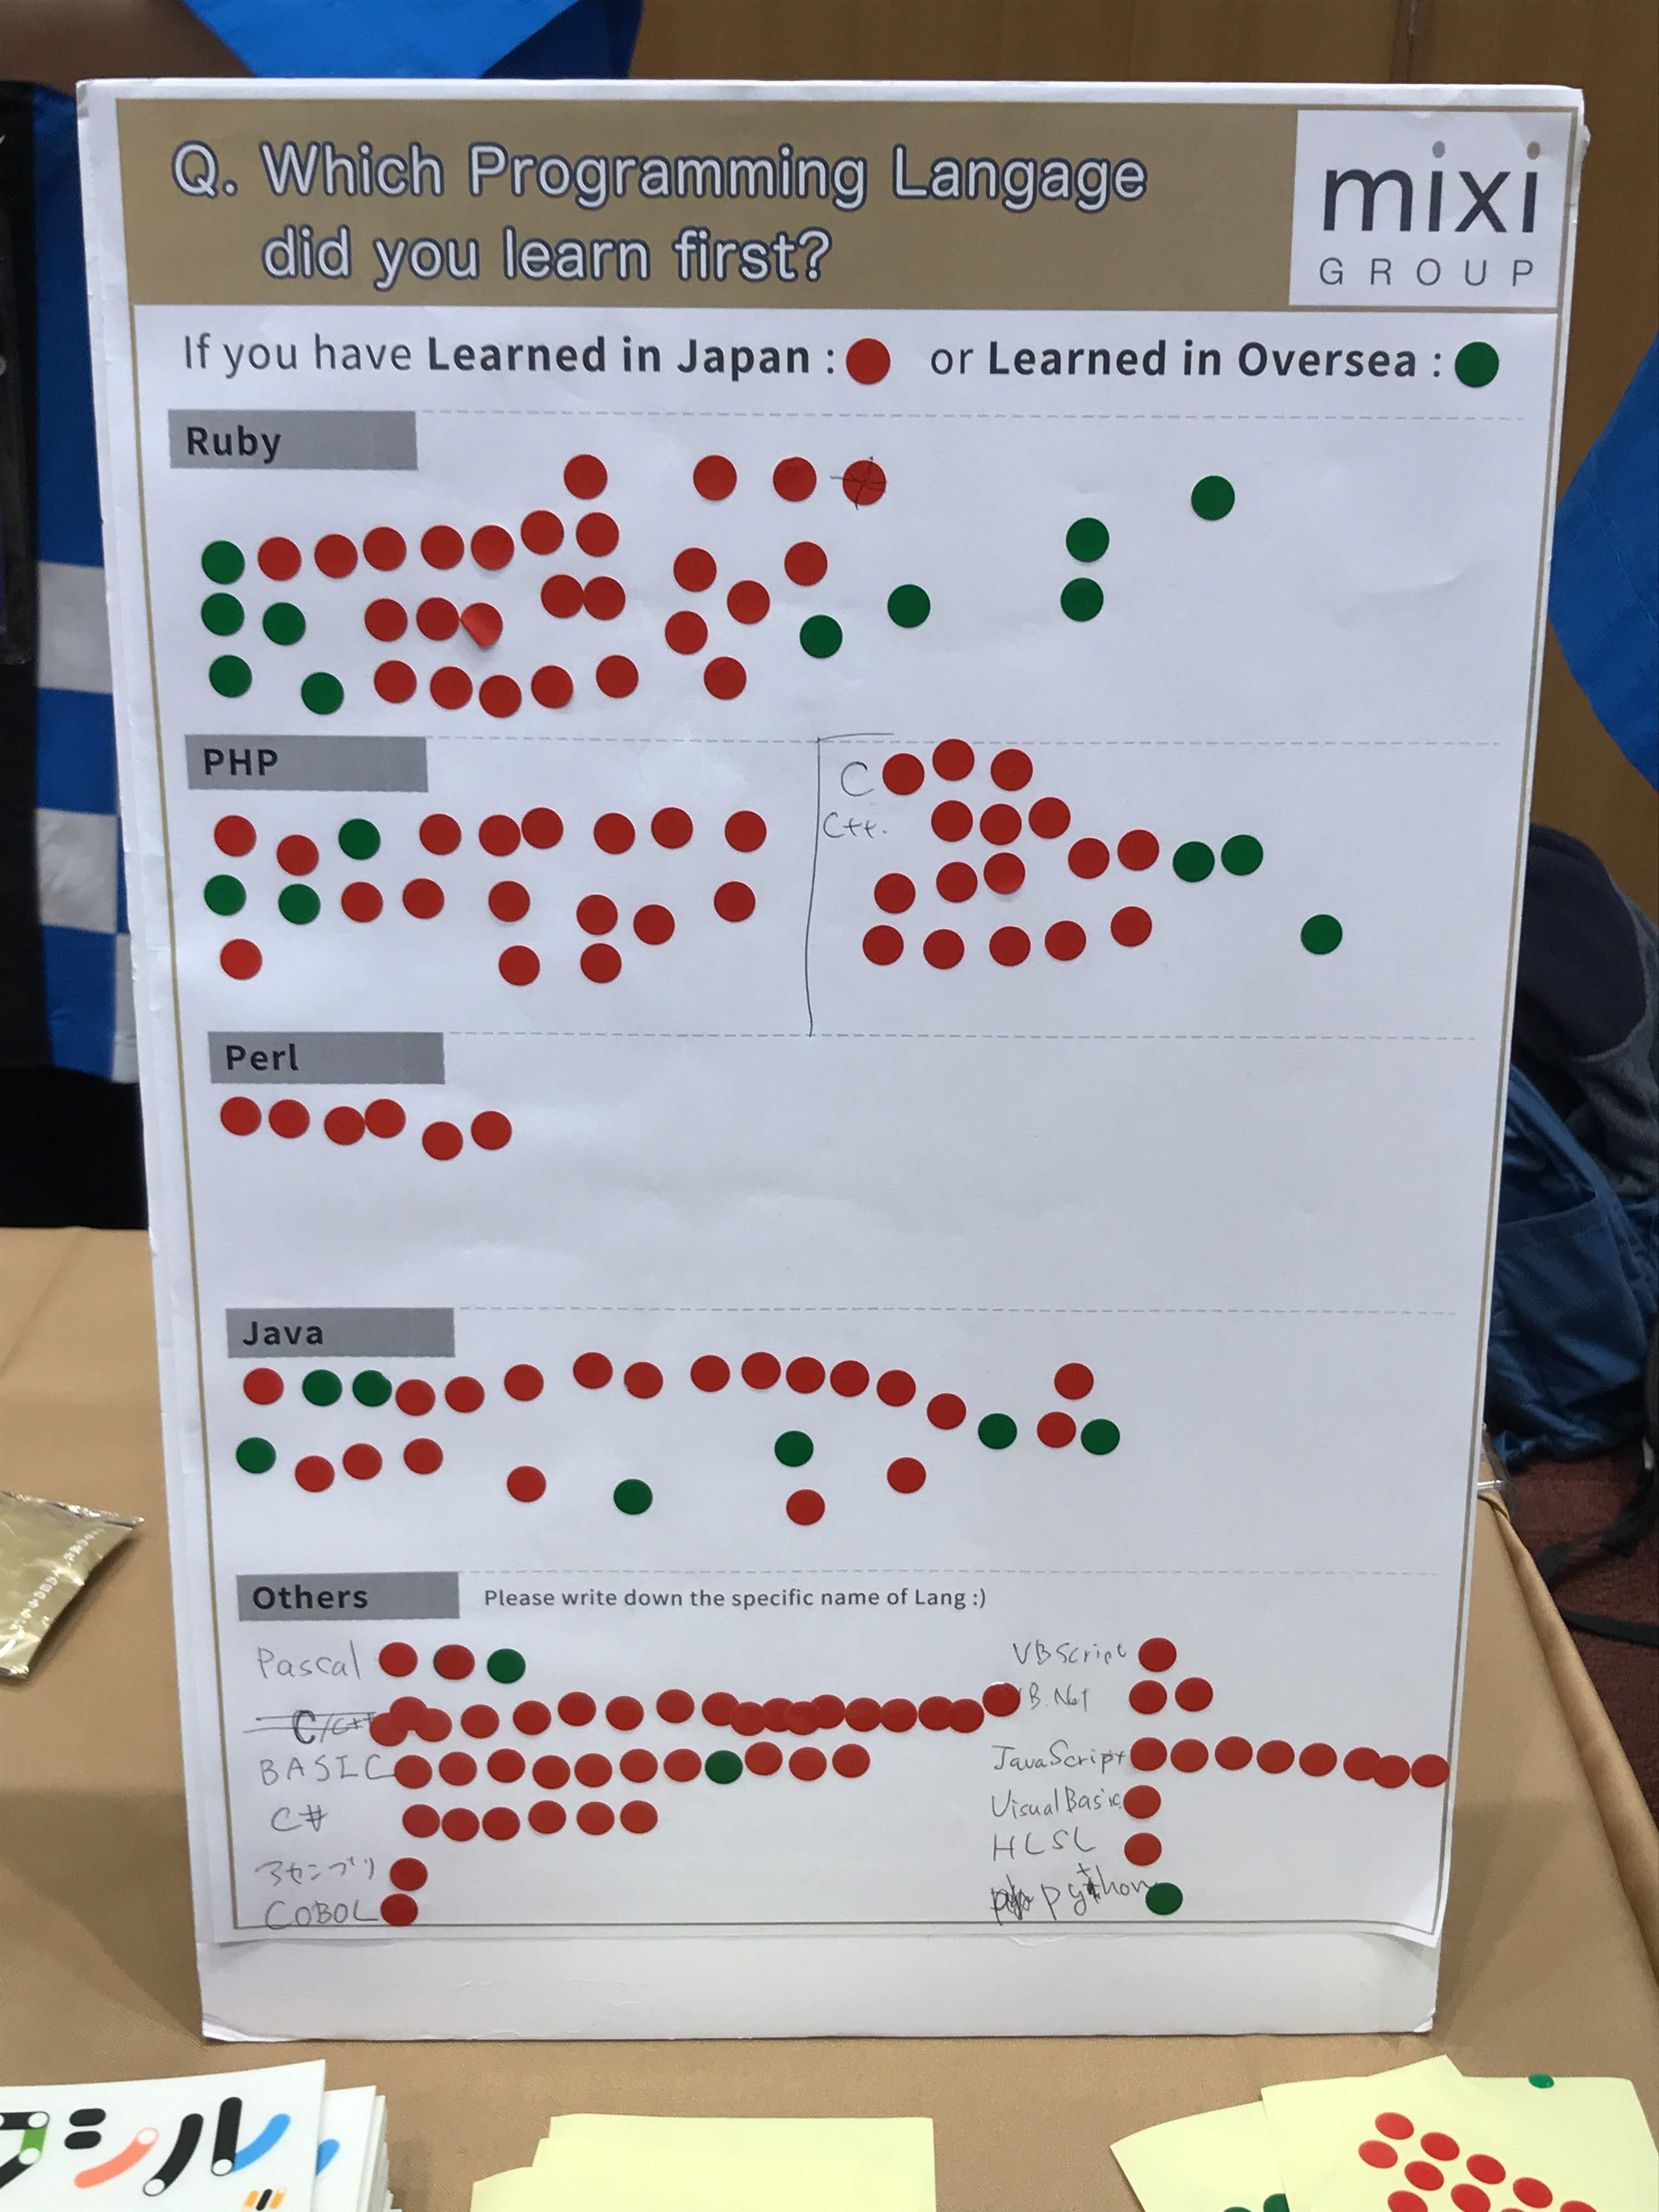 Q. Which Programming Langage
did you learn first?
mixi
GROUP
If you have Learned in Japan : or Learned in Oversea :
Ruby
PHP
C
C++.
Perl
Java
Others
Please write down the specific name of Lang :)
Pascal
C/C++
BASIC
C#
アセンブリ
COBOL
VBScript
VB.Net
JavaScript
VisualBasic
HLSL
python
シル